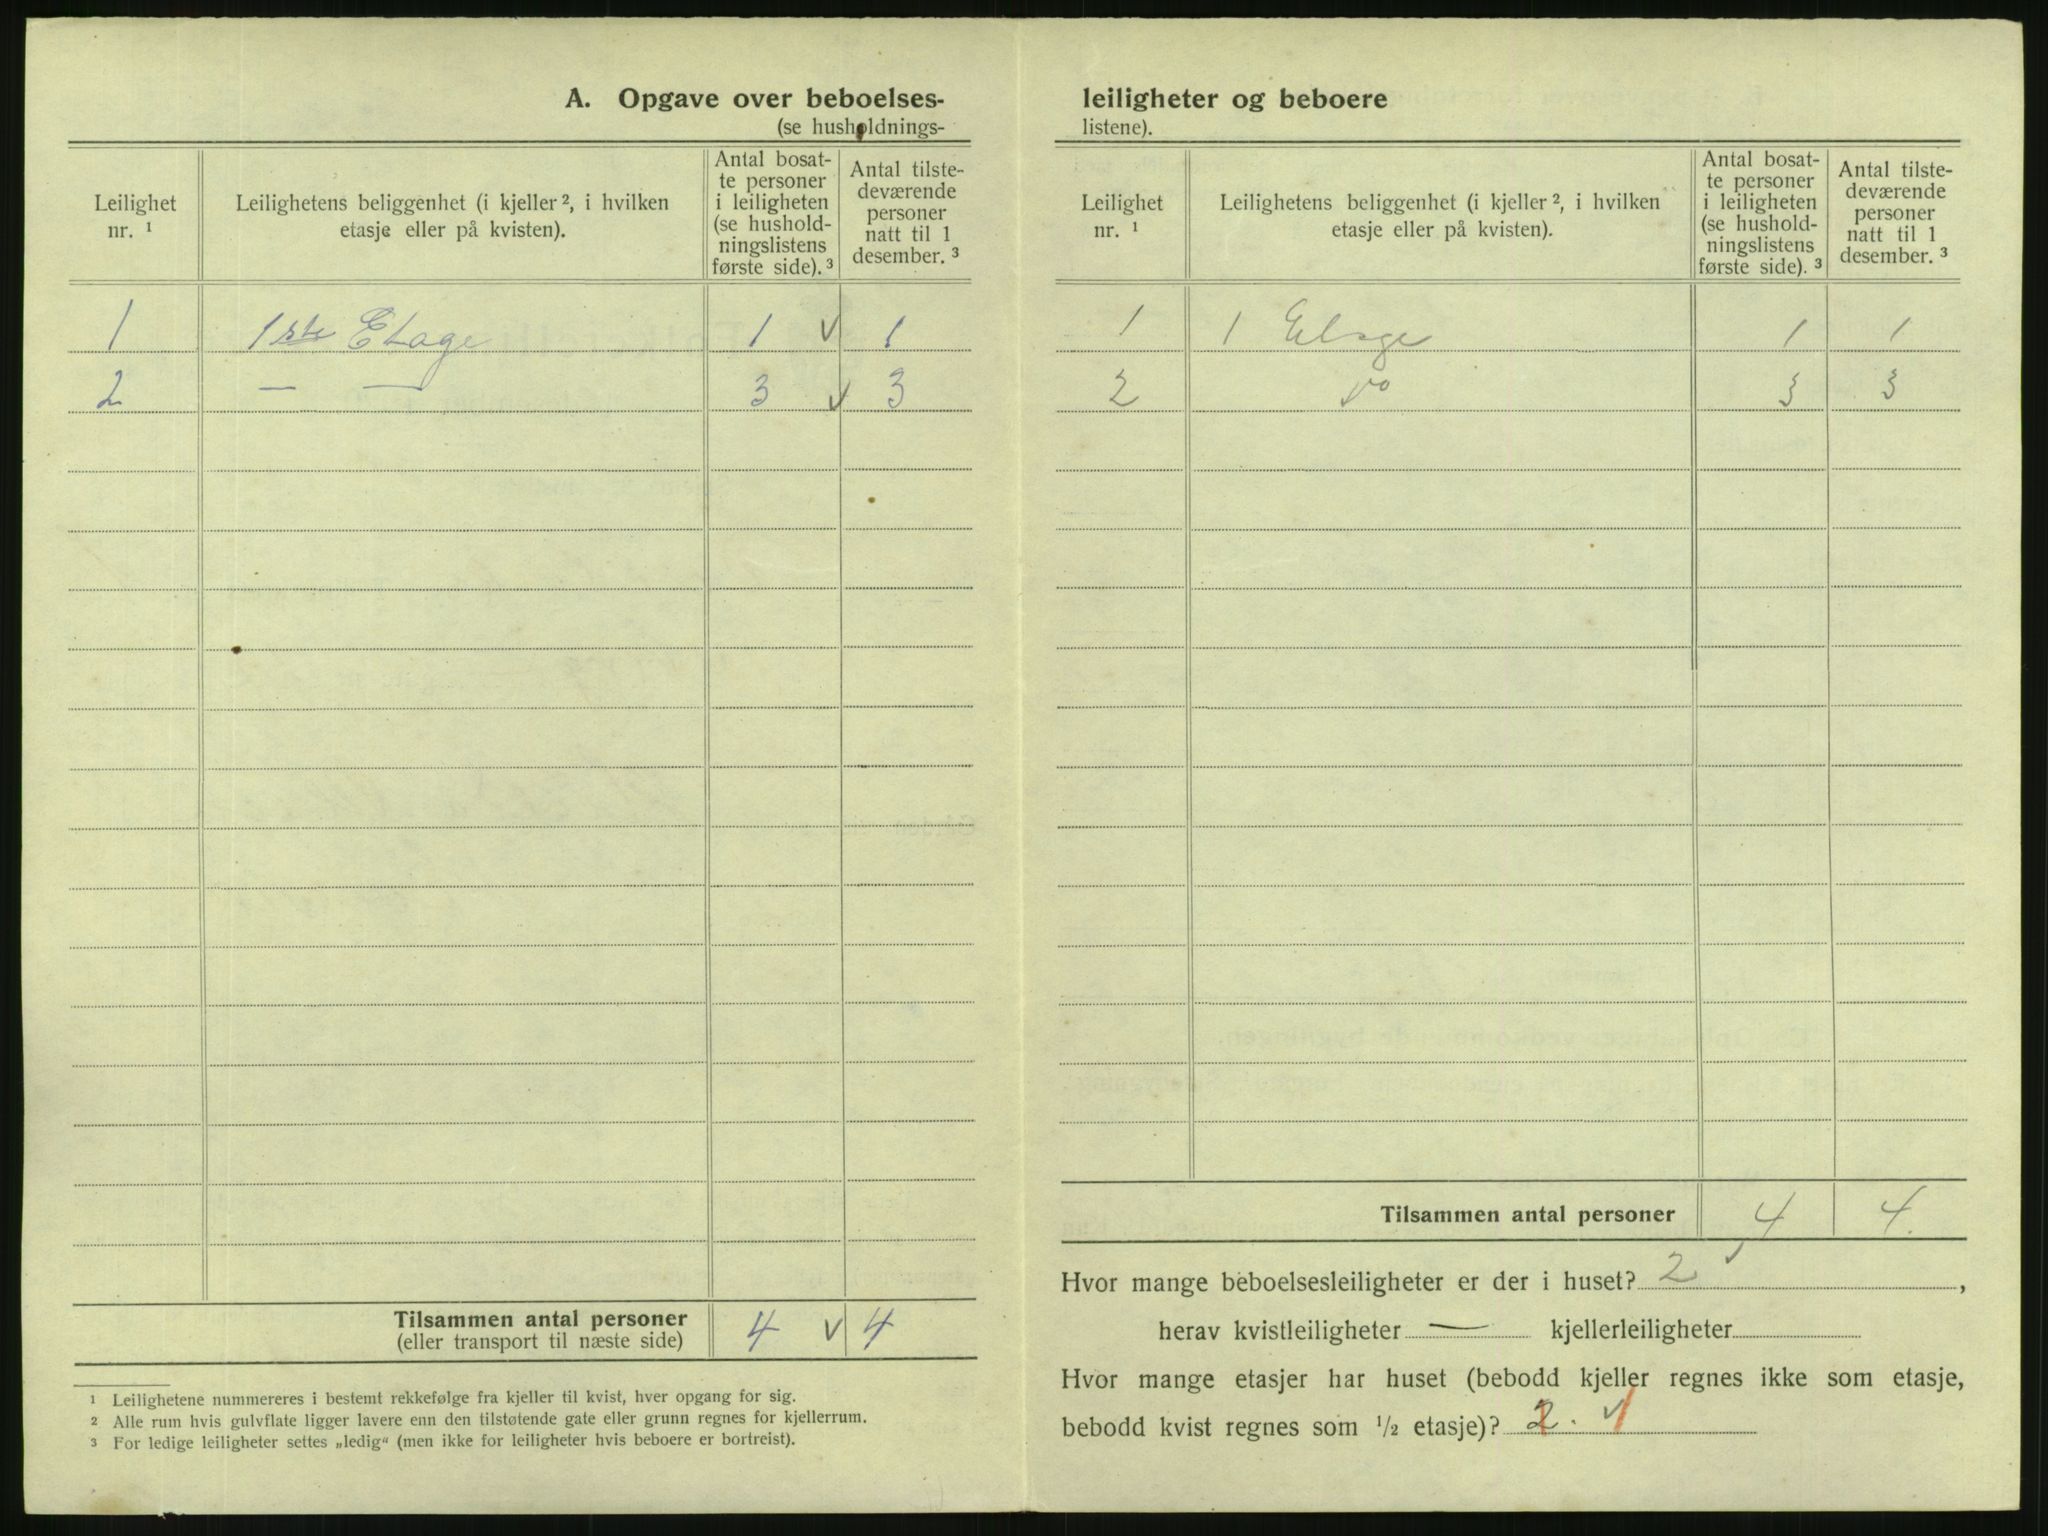 A. Opgave over beboelses-
(se husholdnings-
Leilighet
nr. ¹
Leilighetens beliggenhet (i kjeller ², i hvilken
etasje eller på kvisten).
Antal bosat-
te personer
i leiligheten
(se hushold-
ningslistens
første side). ³
Antal tilste-
deværende
personer
natt til 1
desember. ³
1 1ste Etage 1 √ 1
2 — — 3 √ 3
Tilsammen antal personer 4 √ 4
(eller transport til næste side)
¹ Leilighetene nummereres i bestemt rekkefølge fra kjeller til kvist, hver opgang for sig.
² Alle rum hvis gulvflate ligger lavere enn den tilstøtende gate eller grunn regnes for kjellerrum.
³ For ledige leiligheter settes „ledig“ (men ikke for leiligheter hvis beboere er bortreist).
leiligheter og beboere
listene).
Leilighet
nr. ¹
Leilighetens beliggenhet (i kjeller ², i hvilken
etasje eller på kvisten).
Antal bosat-
te personer
i leiligheten
(se hushold-
ningslistens
første side). ³
Antal tilste-
deværende
personer
natt til 1
desember. ³
1 1 Etage 1 1
2 do 3 3
Tilsammen antal personer 4 4.
Hvor mange beboelsesleiligheter er der i huset? 2 √,
herav kvistleiligheter — kjellerleiligheter
Hvor mange etasjer har huset (bebodd kjeller regnes ikke som etasje,
bebodd kvist regnes som ½ etasje)? 2. √ 1